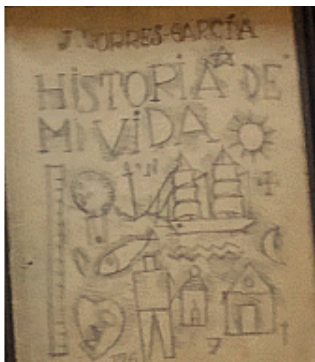 J. TORRES-GARCÍA
HISTORIA DE
MI VIDA